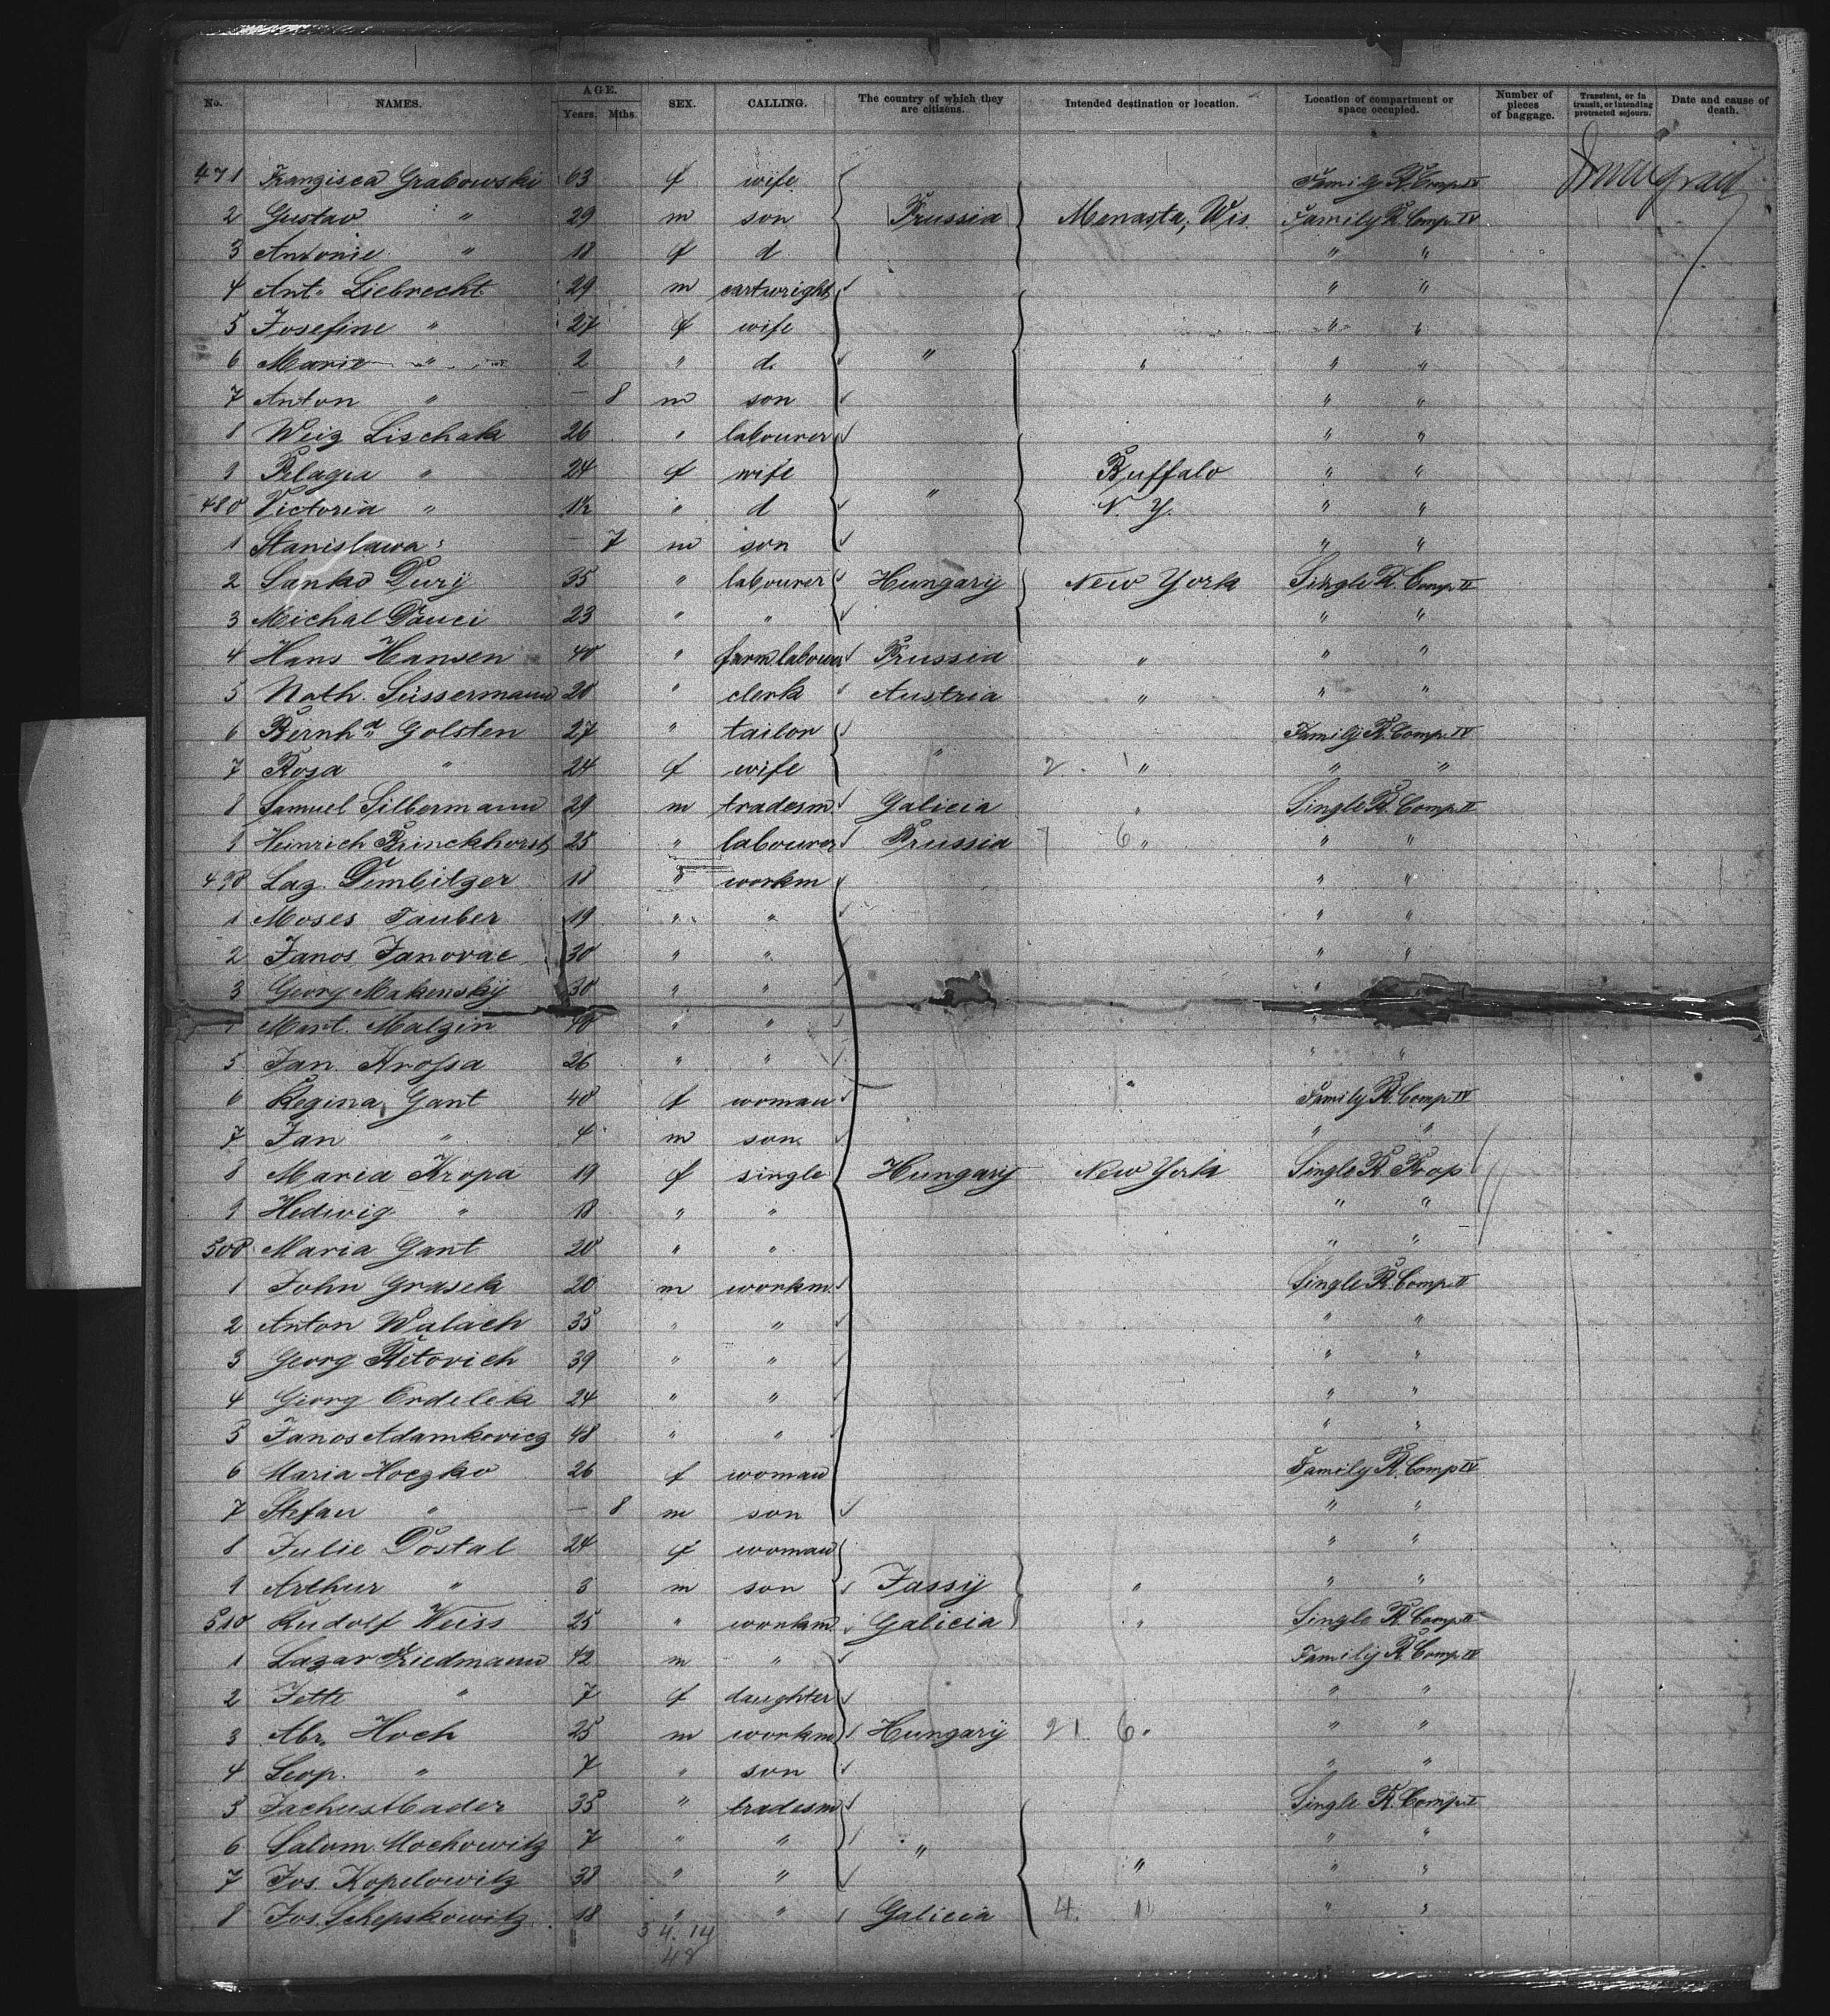 No. NAMES. AGE. Years. Mths. SEX. CALLING. The country of which they are citizens. Intended destination or location. Location of compartment or space occupied. Number of pieces of baggage. Transient, or in transit, or intending protracted sojourn. Date and cause of death.
471 Franzisca Grabowski 63 f wife Family R. Comp. IV
2 Gustav " 29 m son Prussia Menasta, Wis. Family R. Comp. IV
3 Antonie " 18 f d " "
4 Ant. Liebrecht 29 m cartwright " "
5 Josefine " 27 f wife " "
6 Marie " 2 " d. " " " "
7 Anton " — 8 m son " "
8 Weiz Lischak 26 " labourer " "
9 Pelagia " 24 f wife Buffalo " "
480 Victoria " 1½ " d " N. Y. " "
1 Stanislawa " — 7 m son " "
2 Sanko Dury 35 " labourer Hungary New York Single R. Comp. II
3 Michal Dauci 23 " " " "
4 Hans Hansen 40 " farm labourer Prussia " " "
5 Nath. Süssermann 20 " clerk Austria " " "
6 Bernhd. Golsten 27 " tailor Family R. Comp. IV
7 Rosa " 24 f wife " 2 1 " " "
8 Samuel Silbermann 29 m tradesm. Galicia " Single R. Comp. II
9 Heinrich Brinckhorst 25 " labourer Prussia 7 6 " " "
490 Laz. Dembitzer 18 " workm " "
1 Moses Tauber 19 " " " "
2 Janos Janovac 30 " " " "
3 Georg Makensky 30 " " "
Mart. Malzin 40 " " "
5 Jan Kropa 26 " " " "
6 Regina Gant 40 f woman " Family R. Comp. IV
7 Jan " 4 m son " "
8 Maria Kropa 19 f single Hungary New York Single R. Prop
9 Hedwig " 18 " " " "
500 Maria Gant 20 " " " "
1 John Grasek 20 m workm. Single R. Comp. II
2 Anton Walach 35 " " " "
3 Georg Petovich 39 " " " "
4 Georg Erdelek 24 " " " "
5 Janos Adamkovicz 48 " " " "
6 Maria Hoczko 26 f woman Family R. Comp. IV
7 Stefan " — 8 m son " "
8 Julie Postal 24 f woman " "
9 Arthur " 3 m son Jassy " " "
510 Rudolf Weiss 25 " workm. Galicia " Single R. Comp. II
1 Lazar Friedmann 42 m " Family R. Comp. IV
2 Jette " 7 f daughter " "
3 Abr. Hoch 25 m workm Hungary 21. 6. " "
4 Leop. " 7 " son " "
5 35 " tradesm Single R. Comp. I
6 Salom. Mochowitz 7 " " " " "
7 Jos. Kopelowitz 38 " " " " "
8 Jos. Schepskowitz 18 " " Galicia 4. " " "
34. 14
48